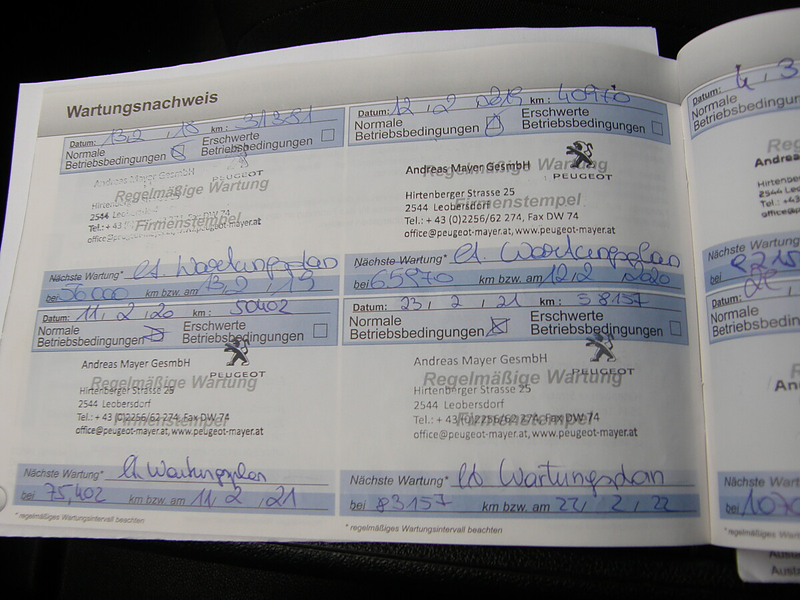 Wartungsnachweis
Datum: 13,2,18 km: 31381
Normale Betriebsbedingungen
Erschwerte Betriebsbedingungen
Andreas Mayer GesmbH
Regelmäßige Wartung
2544 Leobersdorf
Firmenstempel
office@peugeot-mayer.at
Nächste Wartung* lt. Wartungsplan
bei 56000 km bzw. am 13,2,19
Datum: 12,2,2019 km: 40970
Normale Betriebsbedingungen
Erschwerte Betriebsbedingungen
Andreas Mayer GesmbH
Regelmäßige Wartung
PEUGEOT
Hirtenberger Strasse 25
2544 Leobersdorf
Firmenstempel
Tel.: + 43 (0)2256/62 274, Fax DW 74
office@peugeot-mayer.at, www.peugeot-mayer.at
Nächste Wartung* lt. Wartungsplan
bei 65970 km bzw. am 12,2,2020
Datum: 11,2,20 km: 50402
Normale Betriebsbedingungen
Erschwerte Betriebsbedingungen
Andreas Mayer GesmbH
PEUGEOT
Regelmäßige Wartung
Hirtenberger Strasse 25
2544 Leobersdorf
Firmenstempel
Tel.: + 43 (0)2256/62 274, Fax DW 74
office@peugeot-mayer.at, www.peugeot-mayer.at
Nächste Wartung* lt. Wartungsplan
bei 75,402 km bzw. am 11,2,21
* regelmäßiges Wartungsintervall beachten
Datum: 23/2/21 km: 58157
Normale Betriebsbedingungen
Erschwerte Betriebsbedingungen
Andreas Mayer GesmbH
PEUGEOT
Regelmäßige Wartung
Hirtenberger Strasse 25
2544 Leobersdorf
Firmenstempel
Tel.: + 43 (0)2256/62 274, Fax DW 74
office@peugeot-mayer.at, www.peugeot-mayer.at
Nächste Wartung* lt Wartungsplan
bei 83157 km bzw. am 22/2/22
* regelmäßiges Wartungsintervall beachten
Datum: 4,3
Normale
Nächste Wartung*
Datum:
Normale
Nächste Wartung*
bei